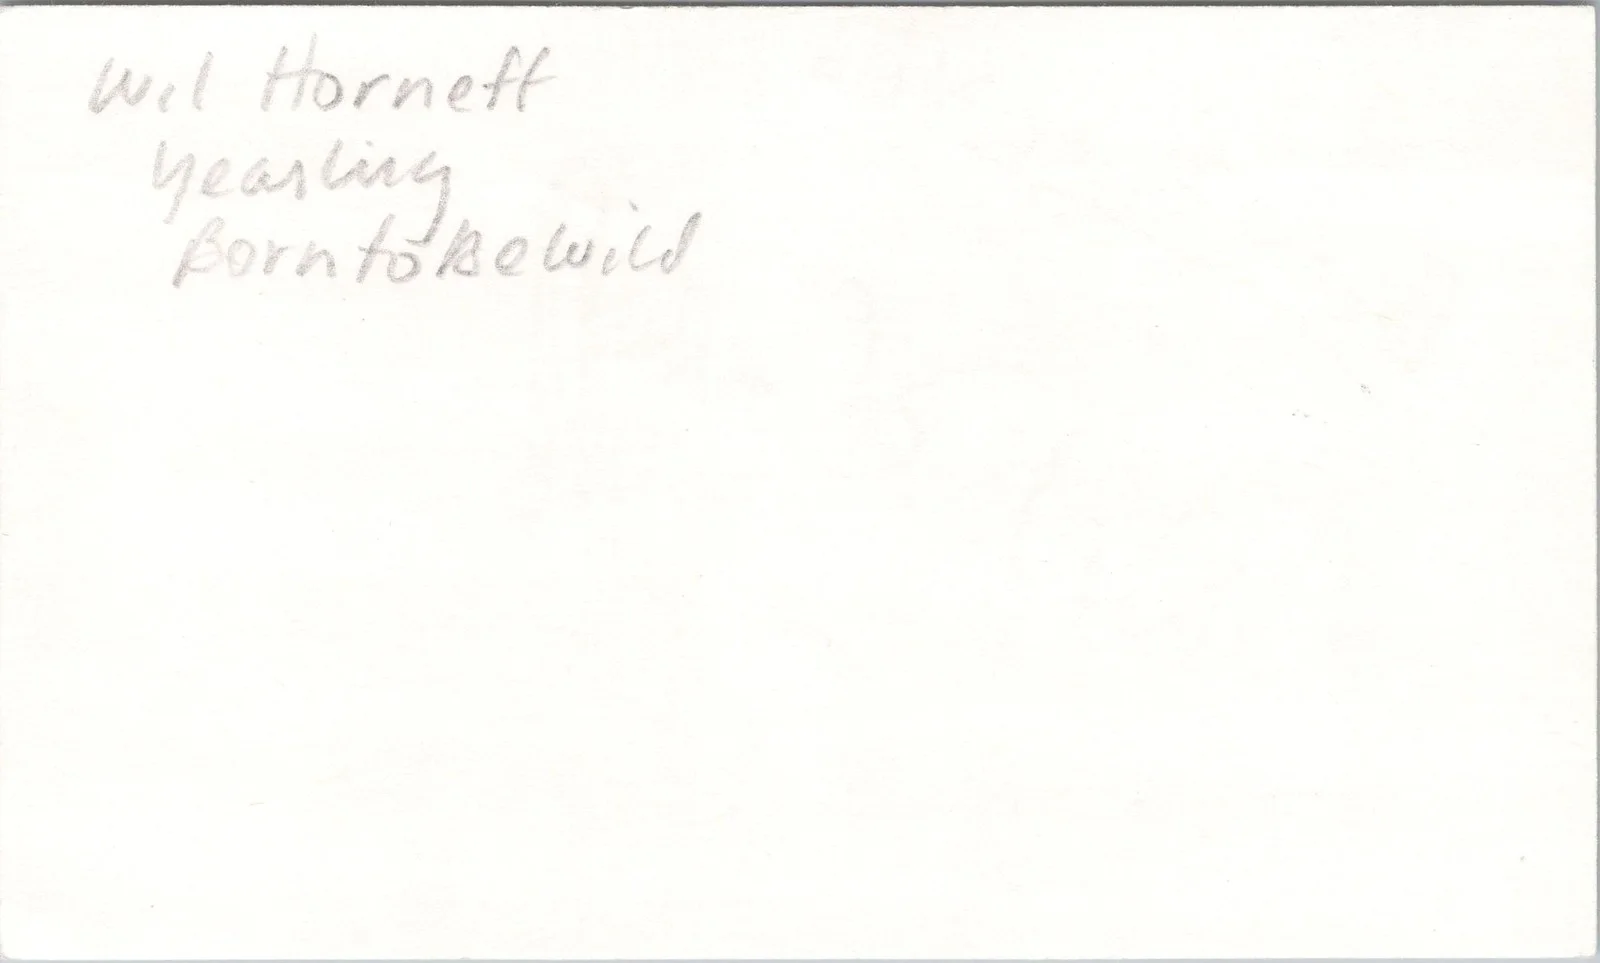 Wil Horneff
Yearling
Born to Be Wild